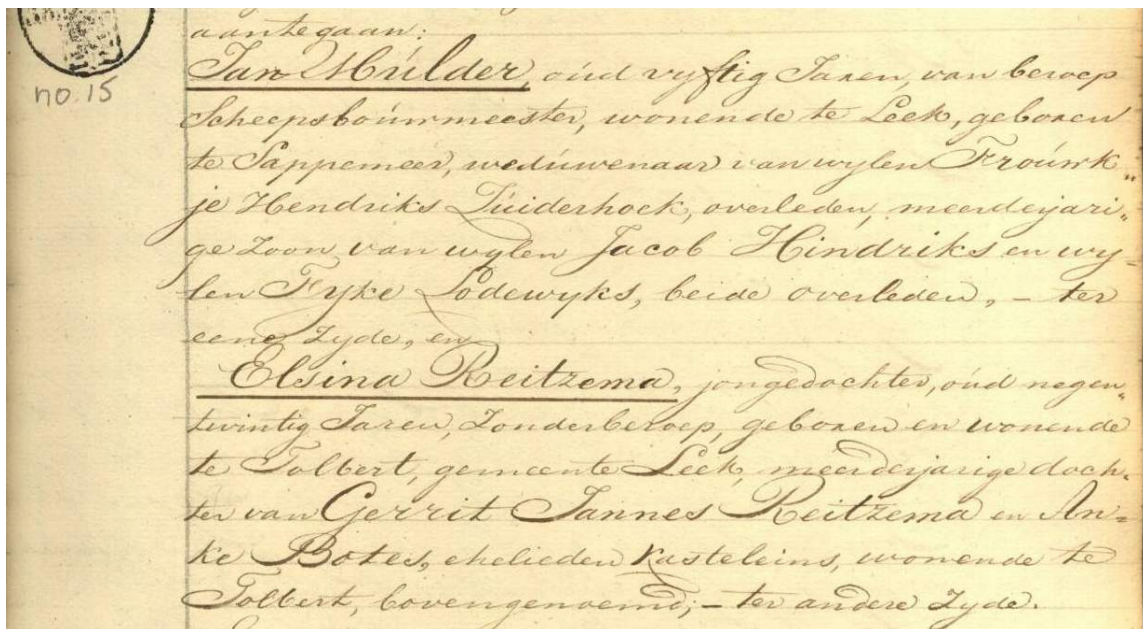 aantegaan:
Jan Mulder, oud vyftig Jaren, van beroep
no. 15
Scheepsbouwmeester, wonende te Leek, geboren
te Sappemeer, weduwenaar van wylen Frouwk„
je Hendriks Tuiderhoek, overleden, meerderjari„
ge Zoon van wylen Jacob Hindriks en wy-
len Fyke Lodewyks, beide overleden, - ter
eene Zyde, en
Elsina Reitzema, jongedochter, oud negen„
twintig Jaren, Zonderberoep, geboren en wonende
te Tolbert, gemeente Leek, meerderjarige doch„
ter van Gerrit Jannes Reitzema en An=
ke Botes, ehelieden Kasteleins, wonende te
Tolbert, bovengenoemd; - ter andere Zyde.